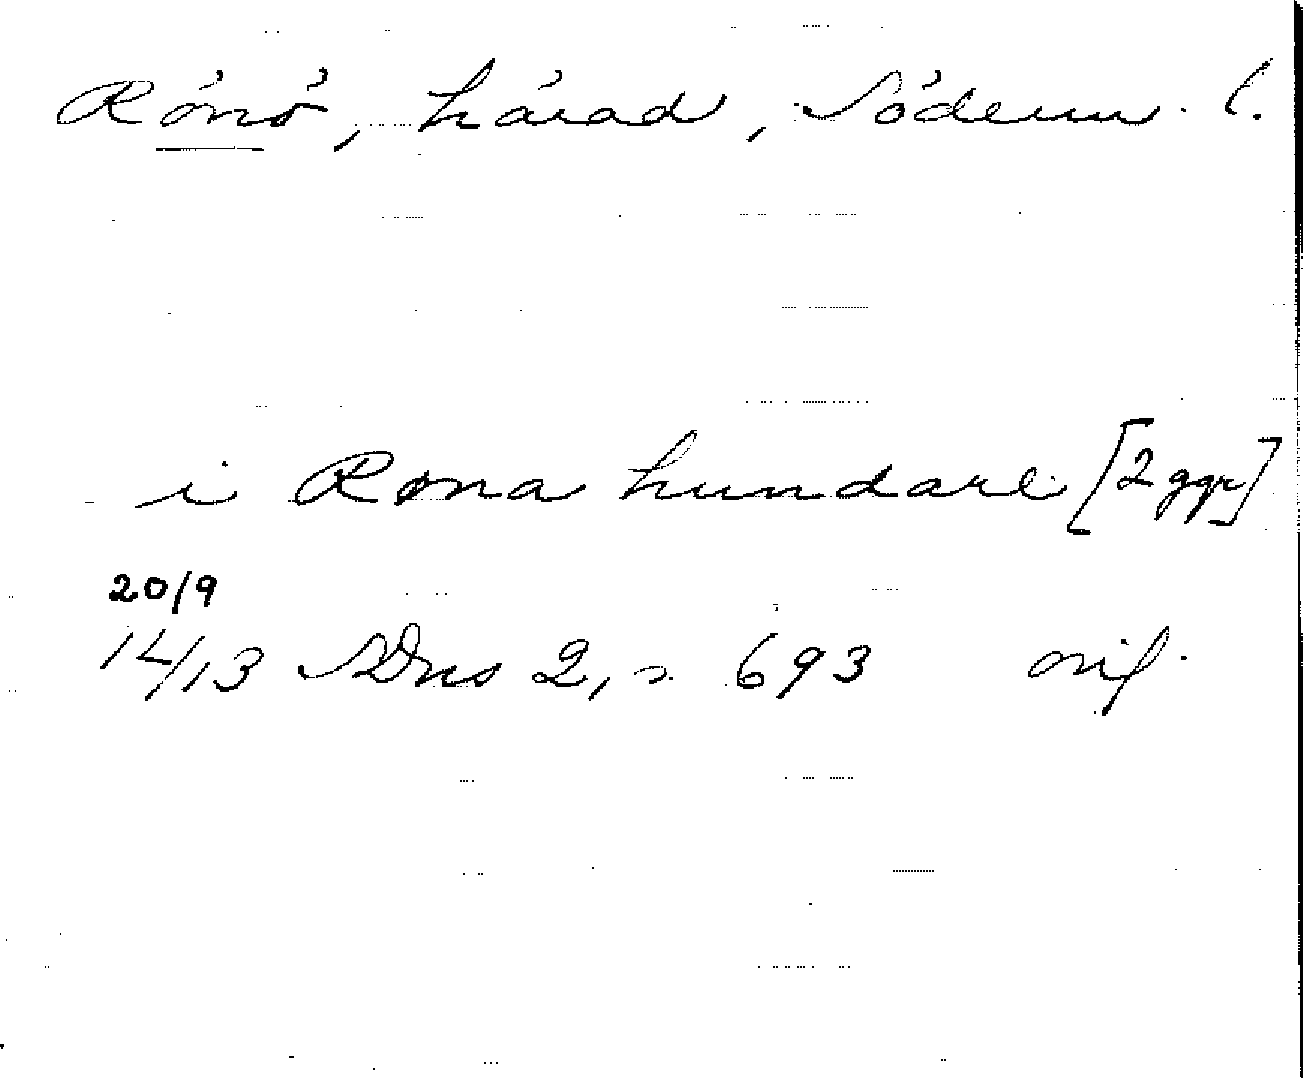 Rönö, härad, Söderm. l.
i Røna hundare [2 ggr]
20/9
1413 SDns 2, s. 693 orig.